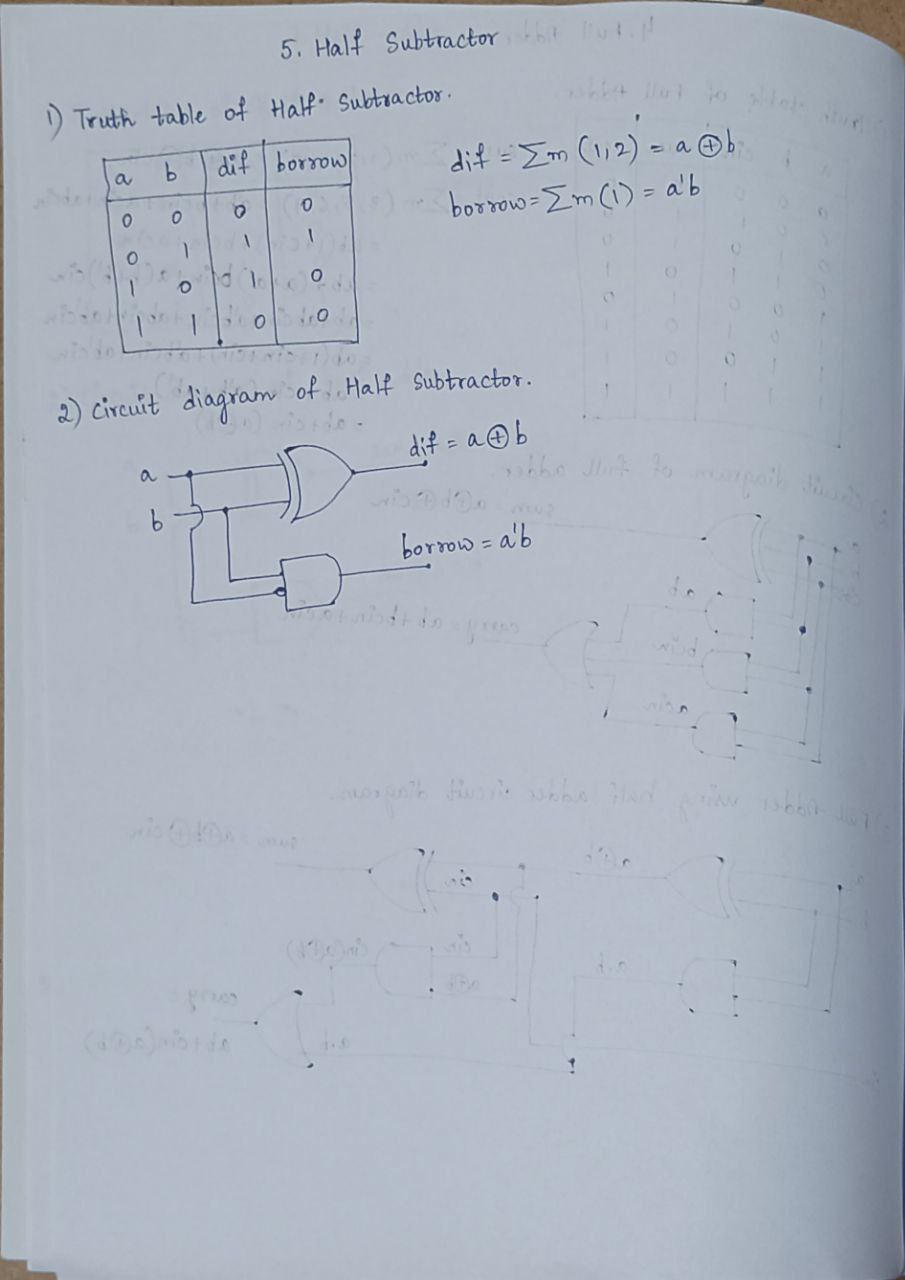 5. Half Subtractor
1) Truth table of Half Subtractor.
a b dif borrow
0 0 0 0
0 1 1 1
1 0 1 0
1 1 0 0
dif = Σm (1,2) = a ⊕ b
borrow = Σm (1) = a'b
2) Circuit diagram of Half Subtractor.
dif = a ⊕ b
a
b
borrow = a'b